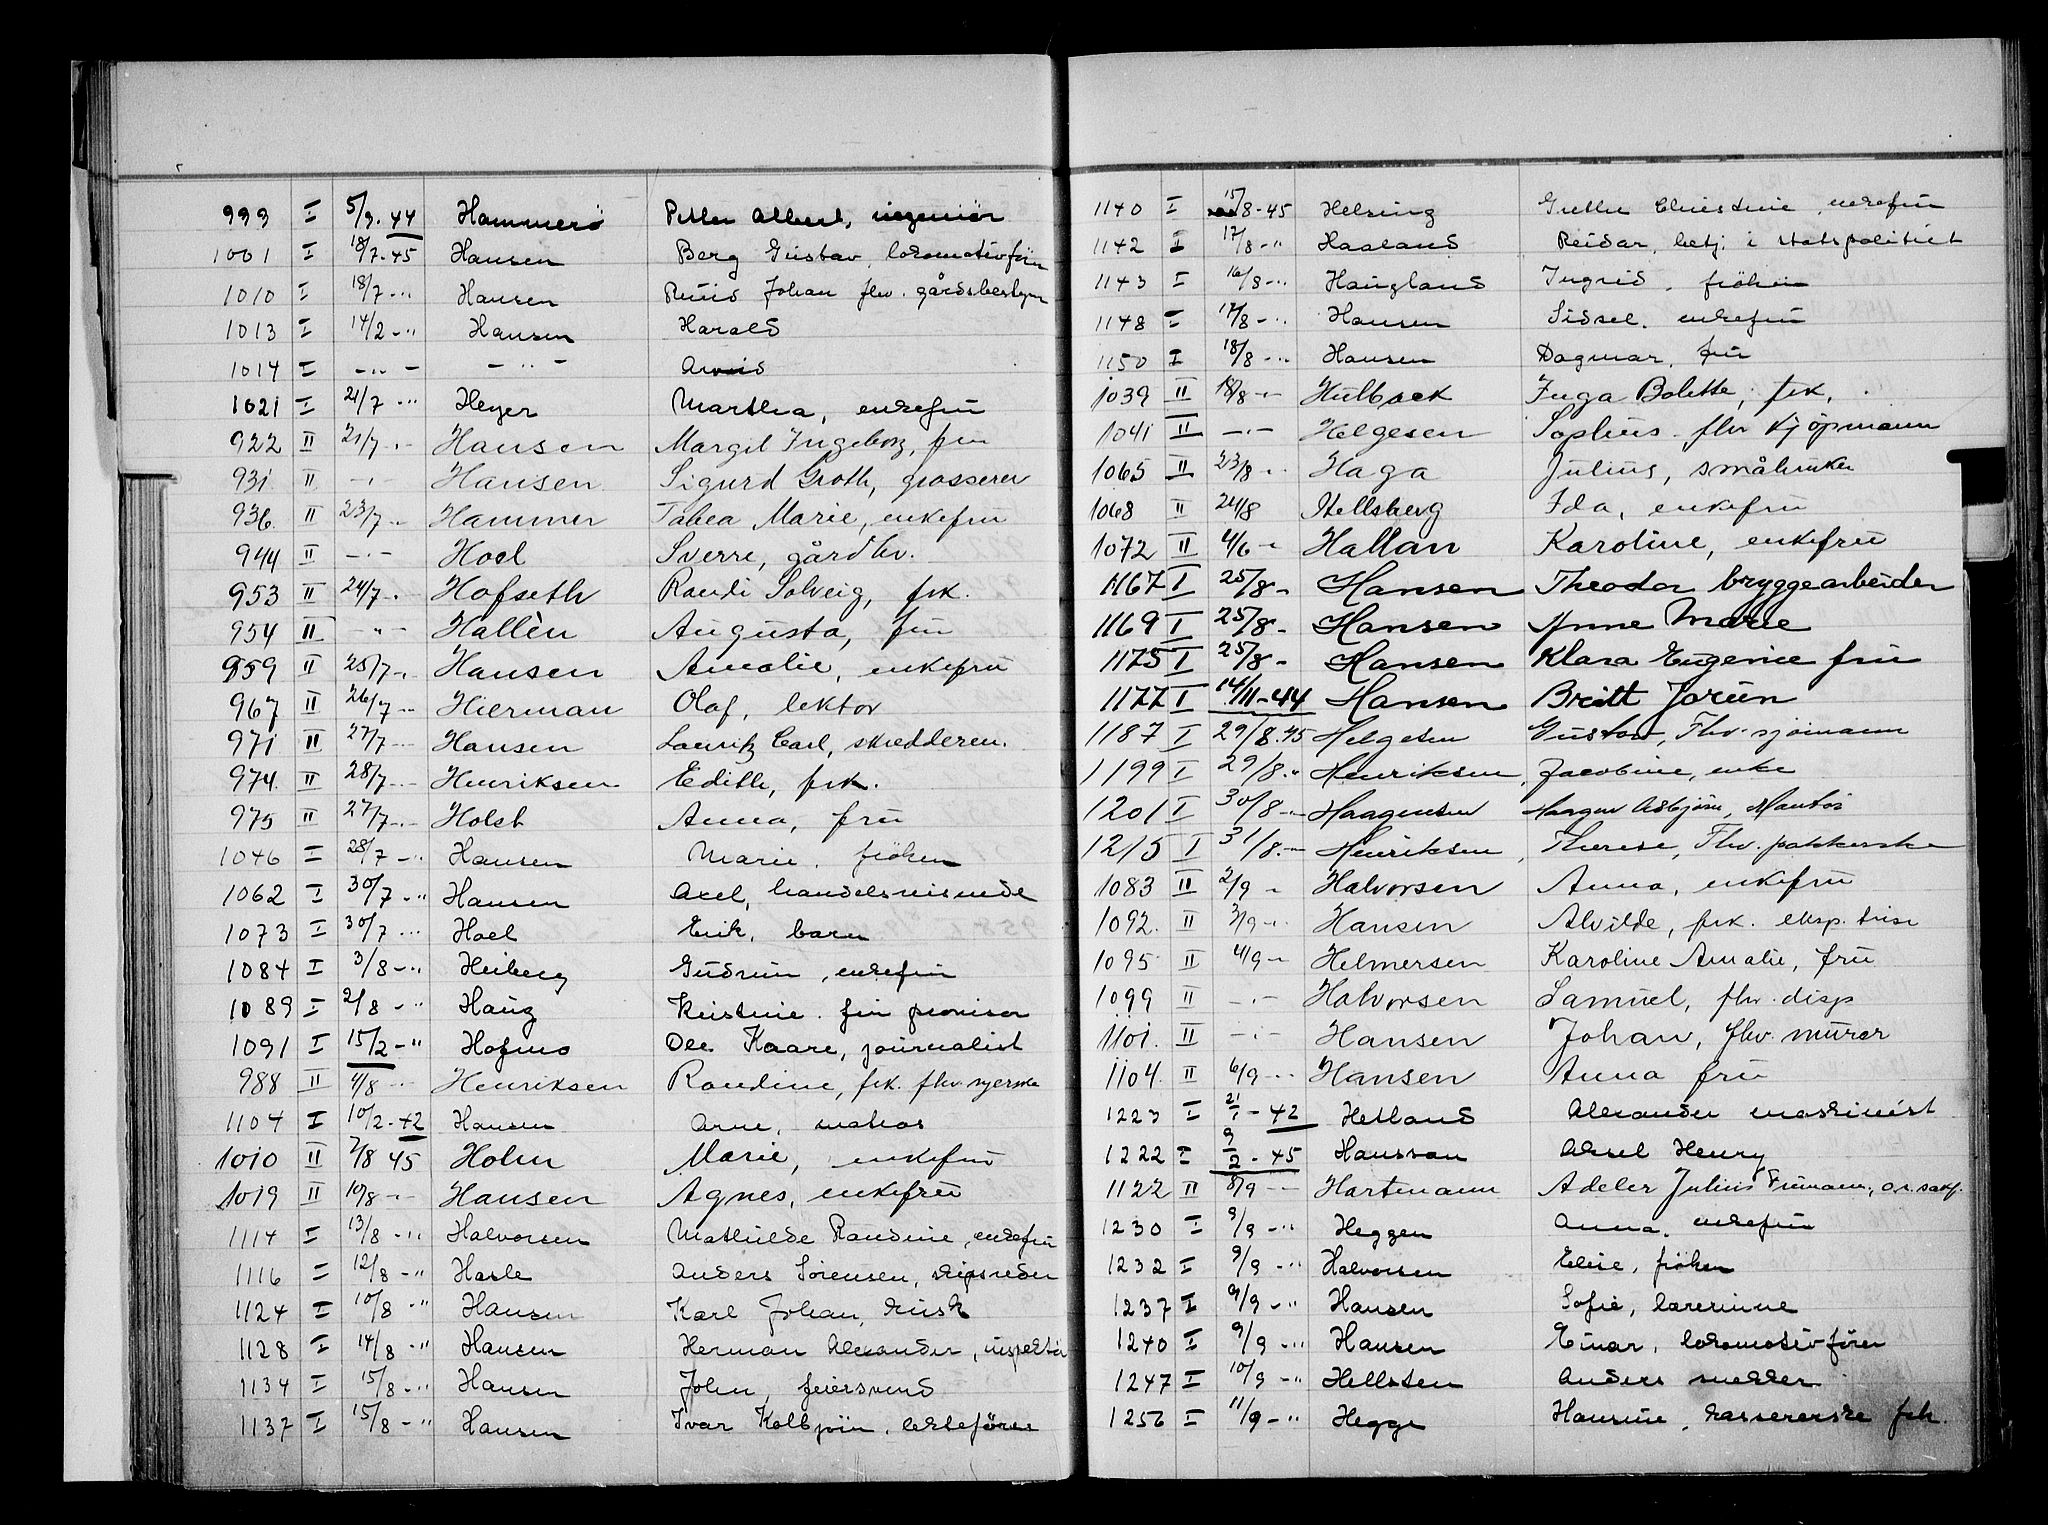 999 I 5/9. 44 Hammerö Petter Albert, ingeniör
1001 I 18/7. 45 Hansen Berg Gustav, lokomotivför
1010 I 18/7 -"- Hansen Johan fhv. gårdsbestyr
1013 I 14/2 -"- Hansen Harald
1014 I -"- -"- Arvid
1021 I 21/7 -"- Heyer Martha, enkefru
922 II 21/7 -"- Hansen Margit Ingeborg, fru
931 II -"- Hansen Sigurd Groth, grosserer
936 II 23/7 -"- Hammer Tabea Marie, enkefru
944 II -"- Hoel Sverre, gårdbr.
953 II 24/7 -"- Hofseth Randi Solveig, frk.
954 II -"- Hallèn Augusta, fru
959 II 25/7 -"- Hansen Amalie, enkefru
967 II 26/7 -"- Hierman Olaf, lektor
971 II 27/7 -"- Hansen Lauritz Carl, skredderm.
974 II 28/7 -"- Henriksen Edith, frk.
975 II 27/7 -"- Holst Anna, fru
1046 I 28/7 -"- Hansen Marie, fröken
1062 I 30/7 -"- Hansen Axel, handelsreisende
1073 I 30/7 -"- Hoel Erik, barn
1084 I 3/8 -"- Heiberg Gudrun, enkefru
1089 I 2/8 -"- Haug Kristine. fru provisor
1091 I 15/2 -"- Hofmo Ole Kaare, journalist
988 II 4/8 -"- Henriksen Randine, frk. fhv. syerske
1104 I 10/2 - 42 Hansen Arne, matros
1010 II 7/8 45 Holm Marie, enkefru
1019 II 10/8 -"- Hansen Agnes, enkefru
1114 I 13/8 -"- Halvorsen Mathilde Randine, enkefru
1116 I 12/8 -"- Hasle Anders Sörensen, skipsreder
1124 I 10/8 -"- Hansen Karl Johan, kusk
1128 I 14/8 -"- Hansen Herman Alexander, inspektör
1134 I 15/8 -"- Hansen John, feiersvend
1137 I 15/8 -"- Hansen Ivar Kolbjörn, lekteförer
1140 I 15/8 - 45 Helsing Grethe Christine, enkefru
1142 I 17/8 -"- Haaland Reidar, betj. i statspolitiet
1143 I 16/8 -"- Haugland Ingrid, fröken
1148 I 17/8 -"- Hansen Sidsel, enkefru
1150 I 18/8 -"- Hansen Dagmar, fru
1039 II 18/8 -"- Hulback Inga Bolette, frk.
1041 II -"- Helgesen Sophus fhv kjöpmann
1065 II 23/8 -"- Haga Julius, småbruker
1068 II 24/8 Hellsberg Ida, enkefru
1072 II 4/6 -"- Hallan Karoline, enkefru
1167 I 25/8 - Hansen Theodor bryggearbeider
1169 I 25/8 - Hansen Anne Marie
1175 I 25/8 - Hansen Klara Eugenie fru
1177 I 14/11 - 44 Hansen Britt Jorun
1187 I 29/8. 45 Helgesen Gustav, Fhv. sjömann
1199 I 29/8 -"- Henriksen, Jacobine, enke
1201 I 30/8 -"- Haagensen Asbjörn, Mantör
1215 I 31/8 -"- Henriksen, Therese, Fhv. pakkerske
1083 II 2/9 - Halvorsen Anna, enkefru
1092. II 3/9 -"- Hansen Alvilde, frk. eksp. trise
1095 II 4/9 -"- Helmersen Karoline Amalie, fru
1099 II -"- Halvorsen Samuel, fhv. disp
1101. II -"- Hansen Johan, fhv. murer
1104. II 6/9 -"- Hansen Anna fru
1223 I 21/1 - 42 Hetland Alexander maskinist
1222 I 9/2 - 45 Hansson Aksel Henry
1122 II 8/9 -"- Hartmann Adeler Julius Fremann, o.r. sakf.
1230 I 9/9 -"- Heggen Anna, enkefru
1232 I 9/9 -"- Halvorsen Elise, fröken
1237 I 9/9 -"- Hansen Sofie, lærerinne
1240 I 9/9 -"- Hansen Einar, lokomotivförer
1247 I 10/9 -"- Hellsten Anders snekker
1256 I 11/9 -"- Hegge Hansine, kassererske frk.